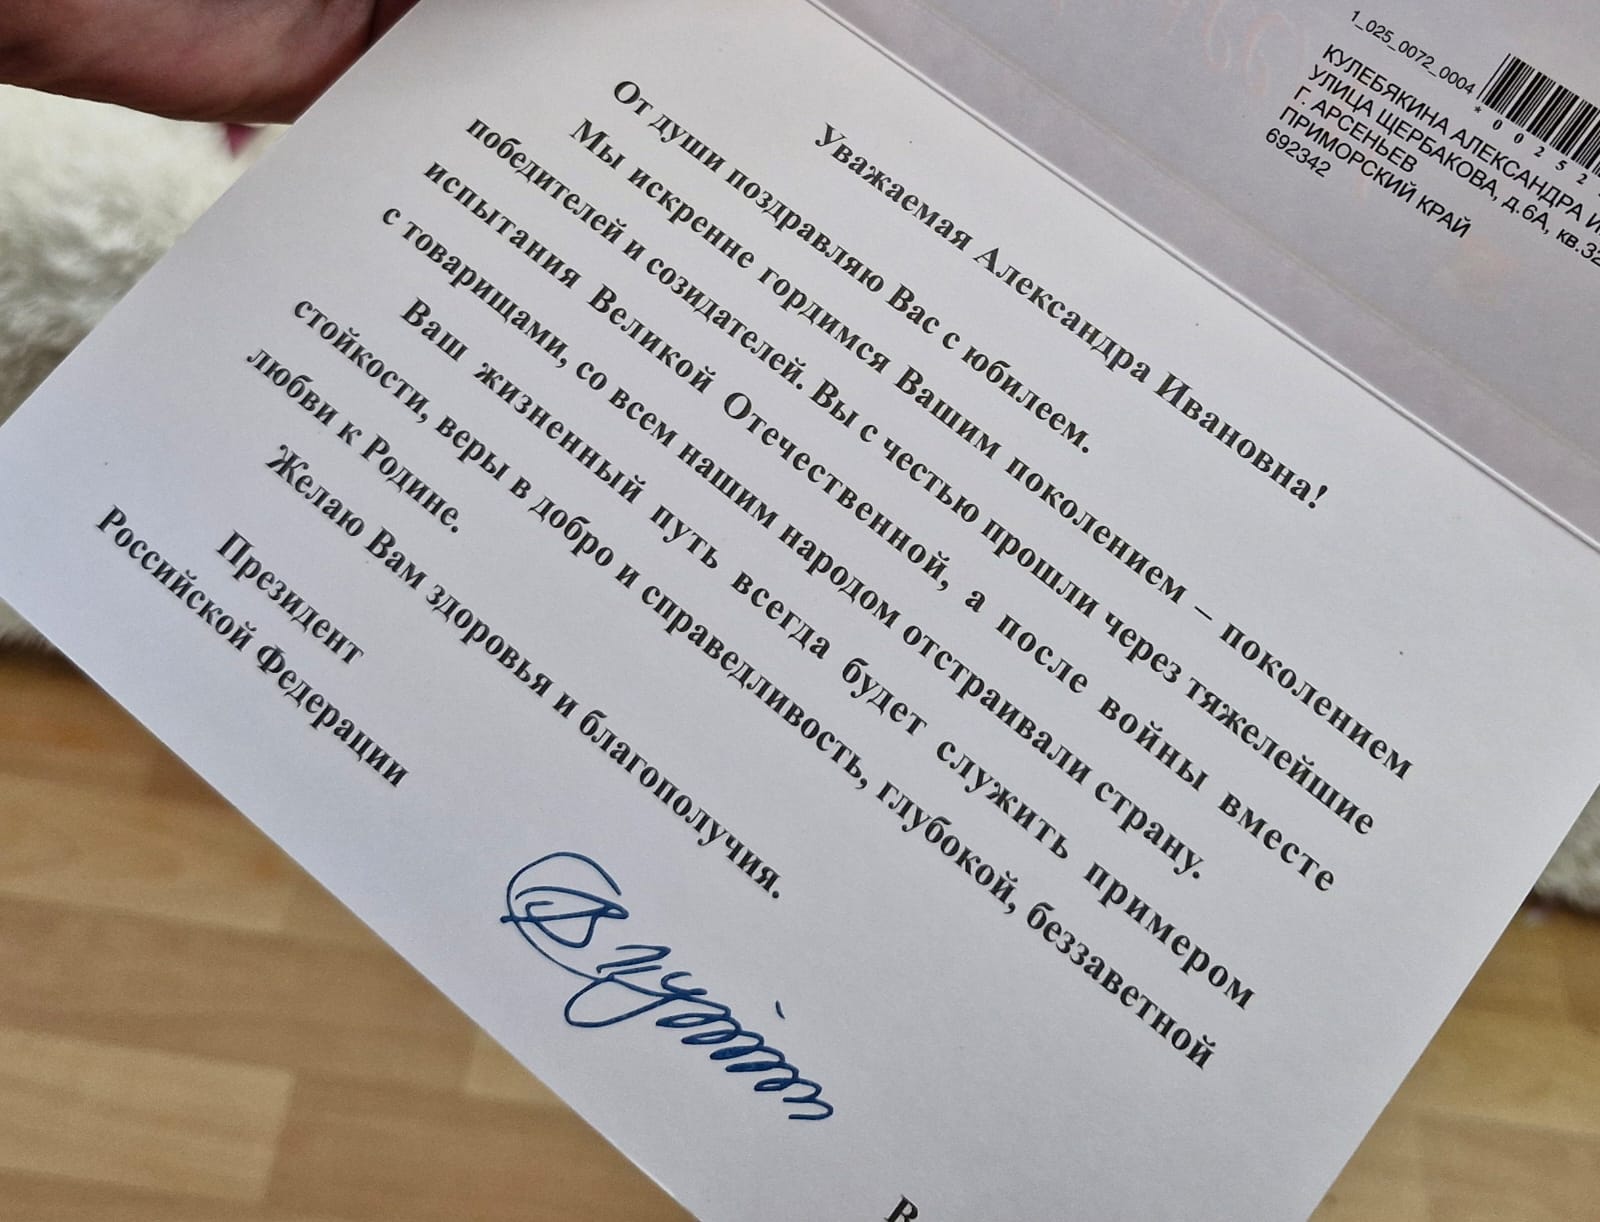 1_025_0072_0004
* 0 0 2 5 2
КУЛЕБЯКИНА АЛЕКСАНДРА
УЛИЦА ЩЕРБАКОВА, д.6А, кв.32
Г. АРСЕНЬЕВ
ПРИМОРСКИЙ КРАЙ
692342
Уважаемая Александра Ивановна!
От души поздравляю Вас с юбилеем.
Мы искренне гордимся Вашим поколением – поколением
победителей и созидателей. Вы с честью прошли через тяжелейшие
испытания Великой Отечественной, а после войны вместе
с товарищами, со всем нашим народом отстраивали страну.
Ваш жизненный путь всегда будет служить примером
стойкости, веры в добро и справедливость, глубокой, беззаветной
любви к Родине.
Желаю Вам здоровья и благополучия.
Президент
Российской Федерации